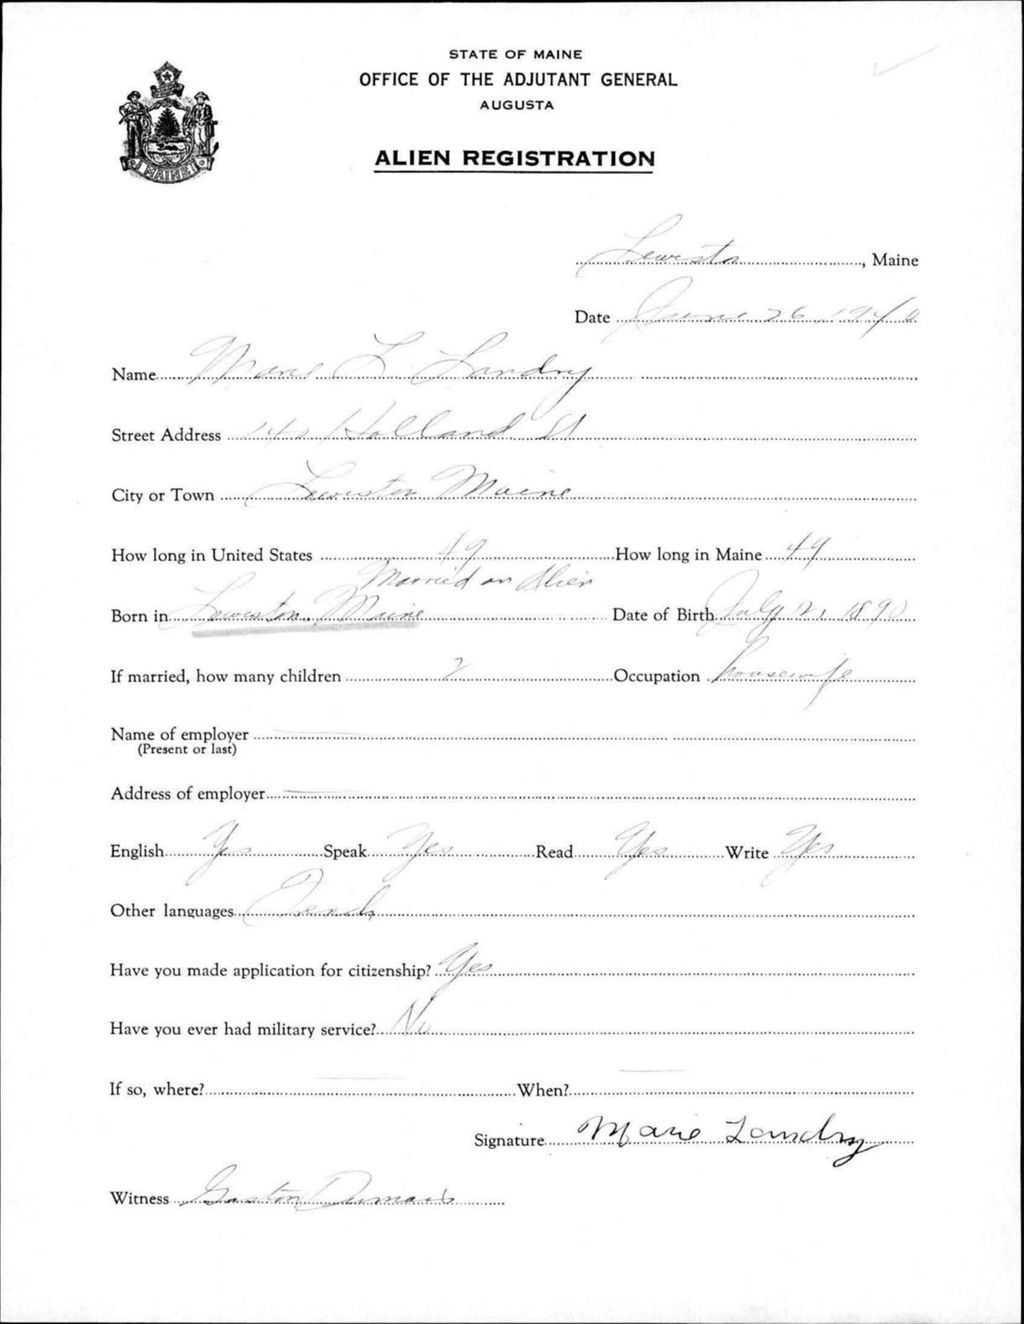 STATE OF MAINE
OFFICE OF THE ADJUTANT GENERAL
AUGUSTA
MAINE
ALIEN REGISTRATION
Lewiston, Maine
Date June 26, 1940
Name Marie L Landry
Street Address 140 Holland St
City or Town Lewiston Maine
How long in United States 49 How long in Maine 49
Married an Alien
Born in Lewiston, Maine Date of Birth July 12, 1890
If married, how many children 2 Occupation housewife
Name of employer
(Present or last)
Address of employer
English Yes Speak Yes Read Yes Write Yes
Other languages French
Have you made application for citizenship? Yes
Have you ever had military service? No
If so, where? When?
Signature Marie Landry
Witness Gaston Dumais